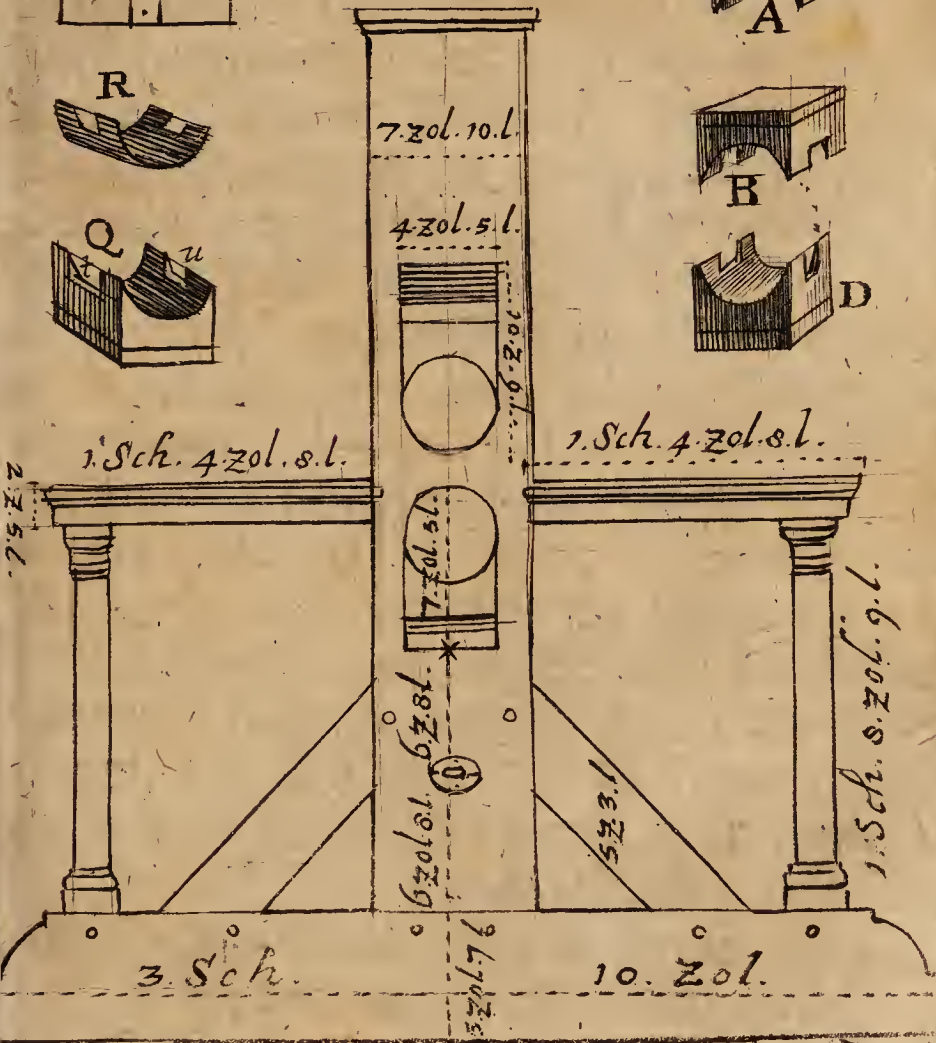 A
R
7.zol.10.l.
B
4.zol.5.l.
Q
t
u
D
1.Sch. 4.zol.8.l.
1.Sch. 4.zol.8.l.
2.Z.5.l.
7.zol.3l.
6.Z.8l.
6zol8.l.
5Z3.l
1.Sch. 8.zol.9.l.
3.Sch.
10.Zol.